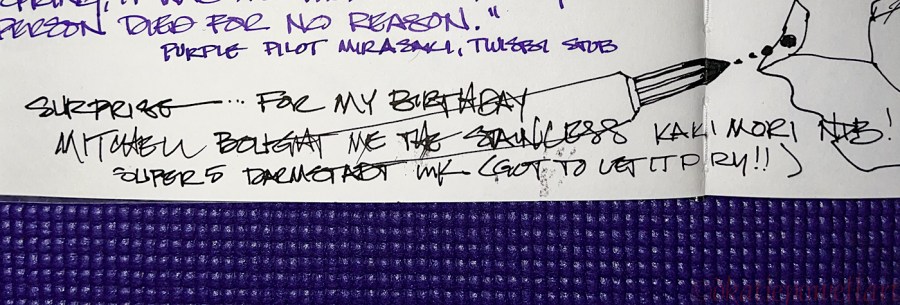 PERSON DIED FOR NO REASON."
PURPLE PILOT MURASAKI, TWSBI STUB
SURPRISE — ... FOR MY BIRTHDAY
MITCHELL BOUGHT ME THE STAINLESS KAKIMORI NIB!
SUPER5 DARMSTADT INK (GOT TO LET IT DRY!!)